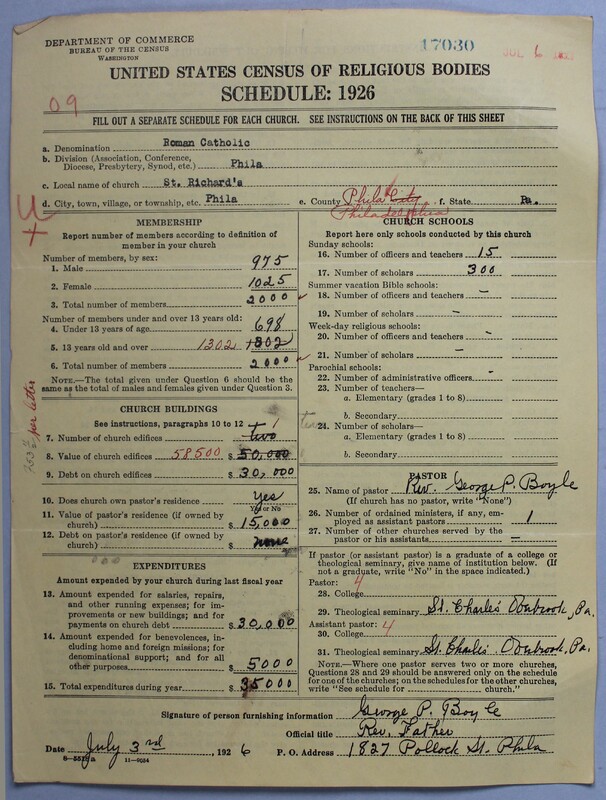 DEPARTMENT OF COMMERCE
BUREAU OF THE CENSUS
WASHINGTON
17030
JUL 6
UNITED STATES CENSUS OF RELIGIOUS BODIES
SCHEDULE: 1926
09
FILL OUT A SEPARATE SCHEDULE FOR EACH CHURCH. SEE INSTRUCTIONS ON THE BACK OF THIS SHEET
a. Denomination Roman Catholic
b. Division (Association, Conference,
Diocese, Presbytery, Synod, etc.) Phila
c. Local name of church St. Richard's
d. City, town, village, or township, etc. Phila e. County Phila City f. State Pa.
Philadelphia
MEMBERSHIP
Report number of members according to definition of
member in your church
Number of members, by sex:
1. Male 975
2. Female 1025
3. Total number of members 2000
Number of members under and over 13 years old:
4. Under 13 years of age 698
5. 13 years old and over 1302 1302
6. Total number of members 2000
NOTE.—The total given under Question 6 should be the
same as the total of males and females given under Question 3.
per letter
CHURCH BUILDINGS
See instructions, paragraphs 10 to 12 1
7. Number of church edifices two
8. Value of church edifices 58500 $ 50,000
9. Debt on church edifices $ 30,000
10. Does church own pastor's residence? Yes
Yes or No
11. Value of pastor's residence (if owned by
church) $ 15,000
12. Debt on pastor's residence (if owned by
church) $ none
EXPENDITURES
Amount expended by your church during last fiscal year
13. Amount expended for salaries, repairs,
and other running expenses; for im-
provements or new buildings; and for
payments on church debt $ 30,000
14. Amount expended for benevolences, in-
cluding home and foreign missions; for
denominational support; and for all
other purposes $ 5000
15. Total expenditures during year $ 35000
CHURCH SCHOOLS
Report here only schools conducted by this church
Sunday schools:
16. Number of officers and teachers 15
17. Number of scholars 300
Summer vacation Bible schools:
18. Number of officers and teachers –
19. Number of scholars –
Week-day religious schools:
20. Number of officers and teachers -
21. Number of scholars –
Parochial schools:
22. Number of administrative officers -
23. Number of teachers—
a. Elementary (grades 1 to 8)
b. Secondary
24. Number of scholars—
a. Elementary (grades 1 to 8)
b. Secondary
PASTOR
25. Name of pastor Rev. George P. Boyle
(If church has no pastor, write "None")
26. Number of ordained ministers, if any, em-
ployed as assistant pastors 1
27. Number of other churches served by the
pastor or his assistants —
If pastor (or assistant pastor) is a graduate of a college or
theological seminary, give name of institution below. (If
not a graduate, write "No" in the space indicated.)
Pastor: 4
28. College
29. Theological seminary St. Charles Overbrook, Pa.
Assistant pastor: 4
30. College
31. Theological seminary St. Charles Overbrook, Pa.
NOTE.—Where one pastor serves two or more churches,
Questions 28 and 29 should be answered only on the schedule
for one of the churches; on the schedules for the other churches,
write "See schedule for ______ church."
Signature of person furnishing information George P. Boyle
Official title Rev. Father
Date July 3rd, 1926 P. O. Address 1827 Pollock St. Phila
11—9034